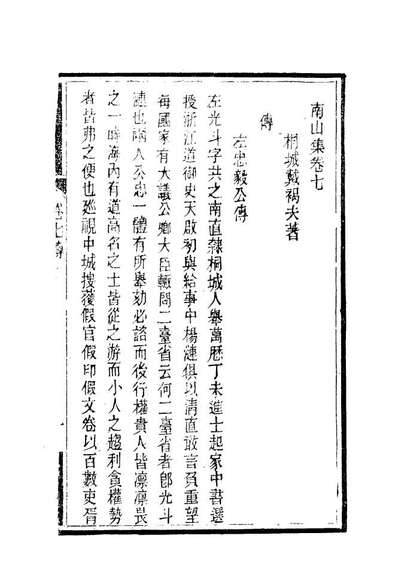 南山集卷七
桐城戴褐夫著
傳
左忠毅公傳
左光斗字共之南直隸桐城人舉萬厯丁未進士起家中書選
授浙江道御史天啟初與給事中楊漣俱以清直敢言負重望
每國家有大議公卿大臣輒問二臺省云何二臺省者卽光斗
漣也兩人公忠一體有所舉劾必諮而後行權貴人皆凜凜畏
之一時海內有道高名之士皆從之游而小人之趨利貪權勢
者皆弗之便也廵視中城搜獲假官假印假文卷以百數吏胥
卷七 傳